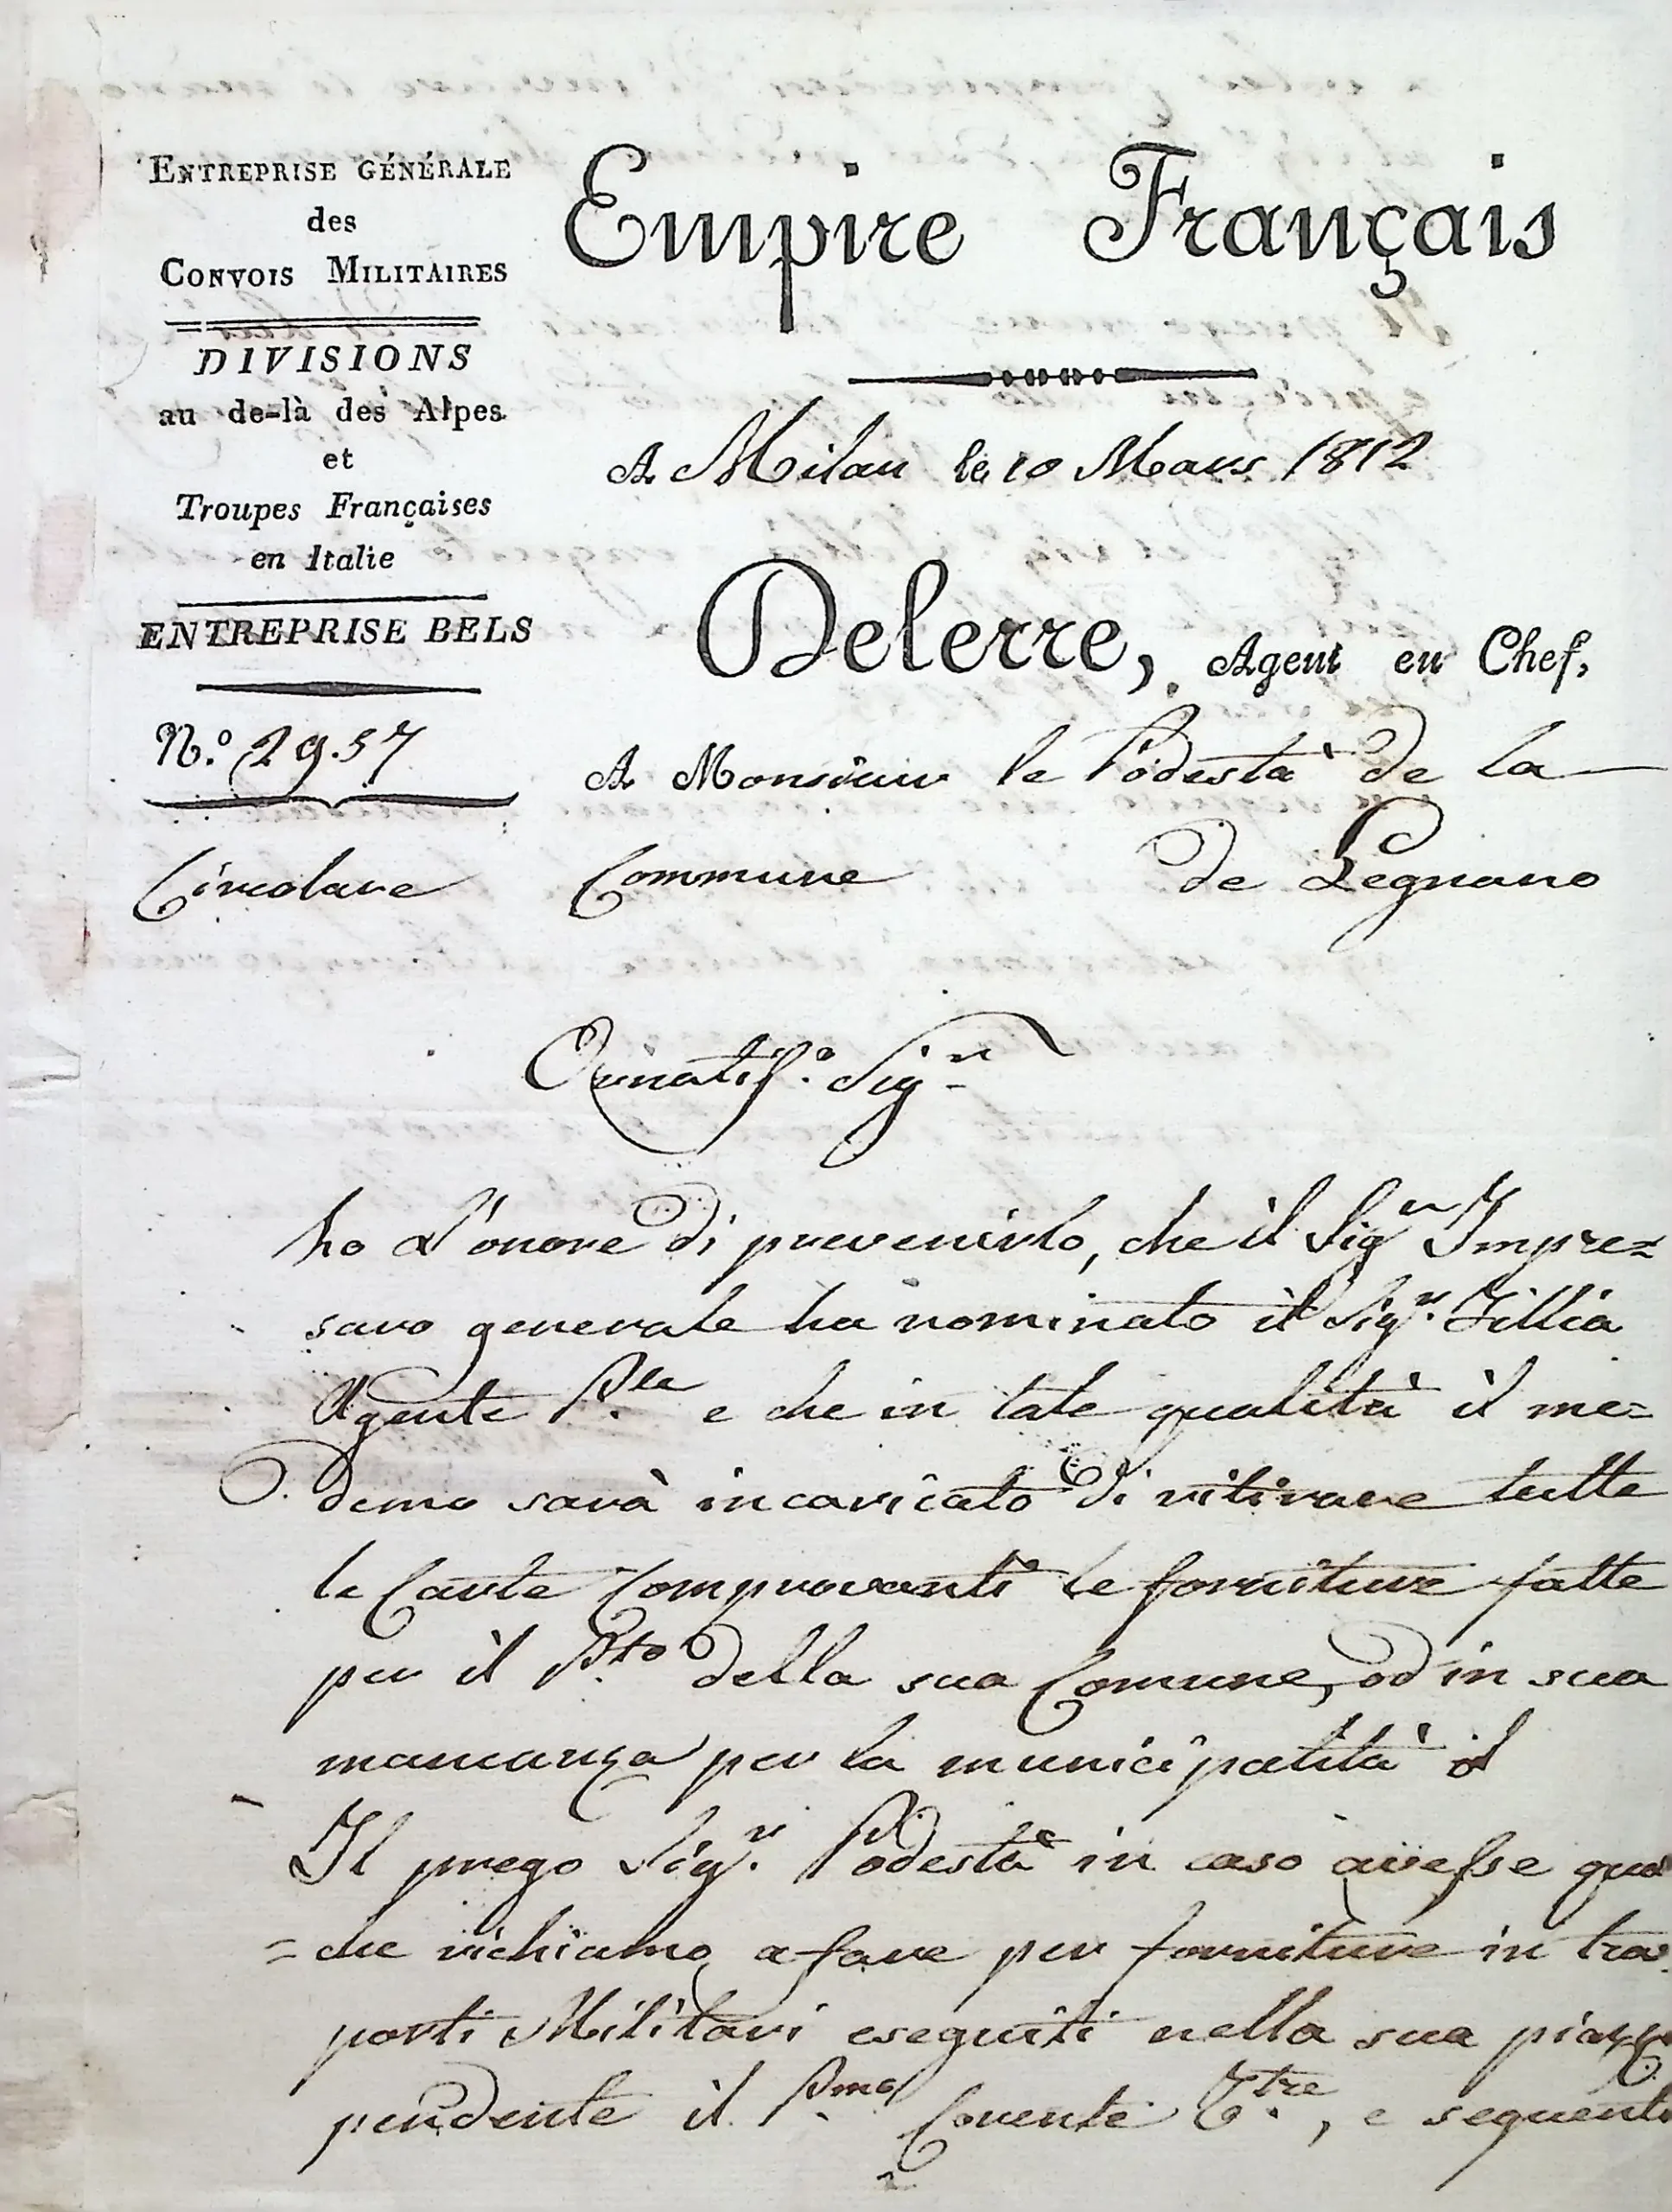 ENTREPRISE GÉNÉRALE
des
CONVOIS MILITAIRES
DIVISIONS
au de-là des Alpes
et
Troupes Françaises
en Italie
ENTREPRISE BELS
N.º 2957
Circolare
Empire Français
A Milan le 10 Mars 1812
Delerre, Agent en Chef,
A Monsieur le Podestà de la
Commune de Legnano
Ornatiss.º Sig.r
ho l'onore di prevenirlo, che il Sig.r Impre=
saro generale ha nominato il Sig.r Tillia
Agente P.le e che in tale qualità il me=
demo sarà incaricato di ritirare tutte
le Carte Comprovanti le forniture fatte
per il P.to della sua Comune, od in sua
mancanza per la municipalità
Il prego Sig.r Podestà in caso avesse qual
=che richiamo a fare per forniture in tras
porti Militari eseguiti nella sua piazza
pendente il P.mo Corrente T.tre, e seguenti